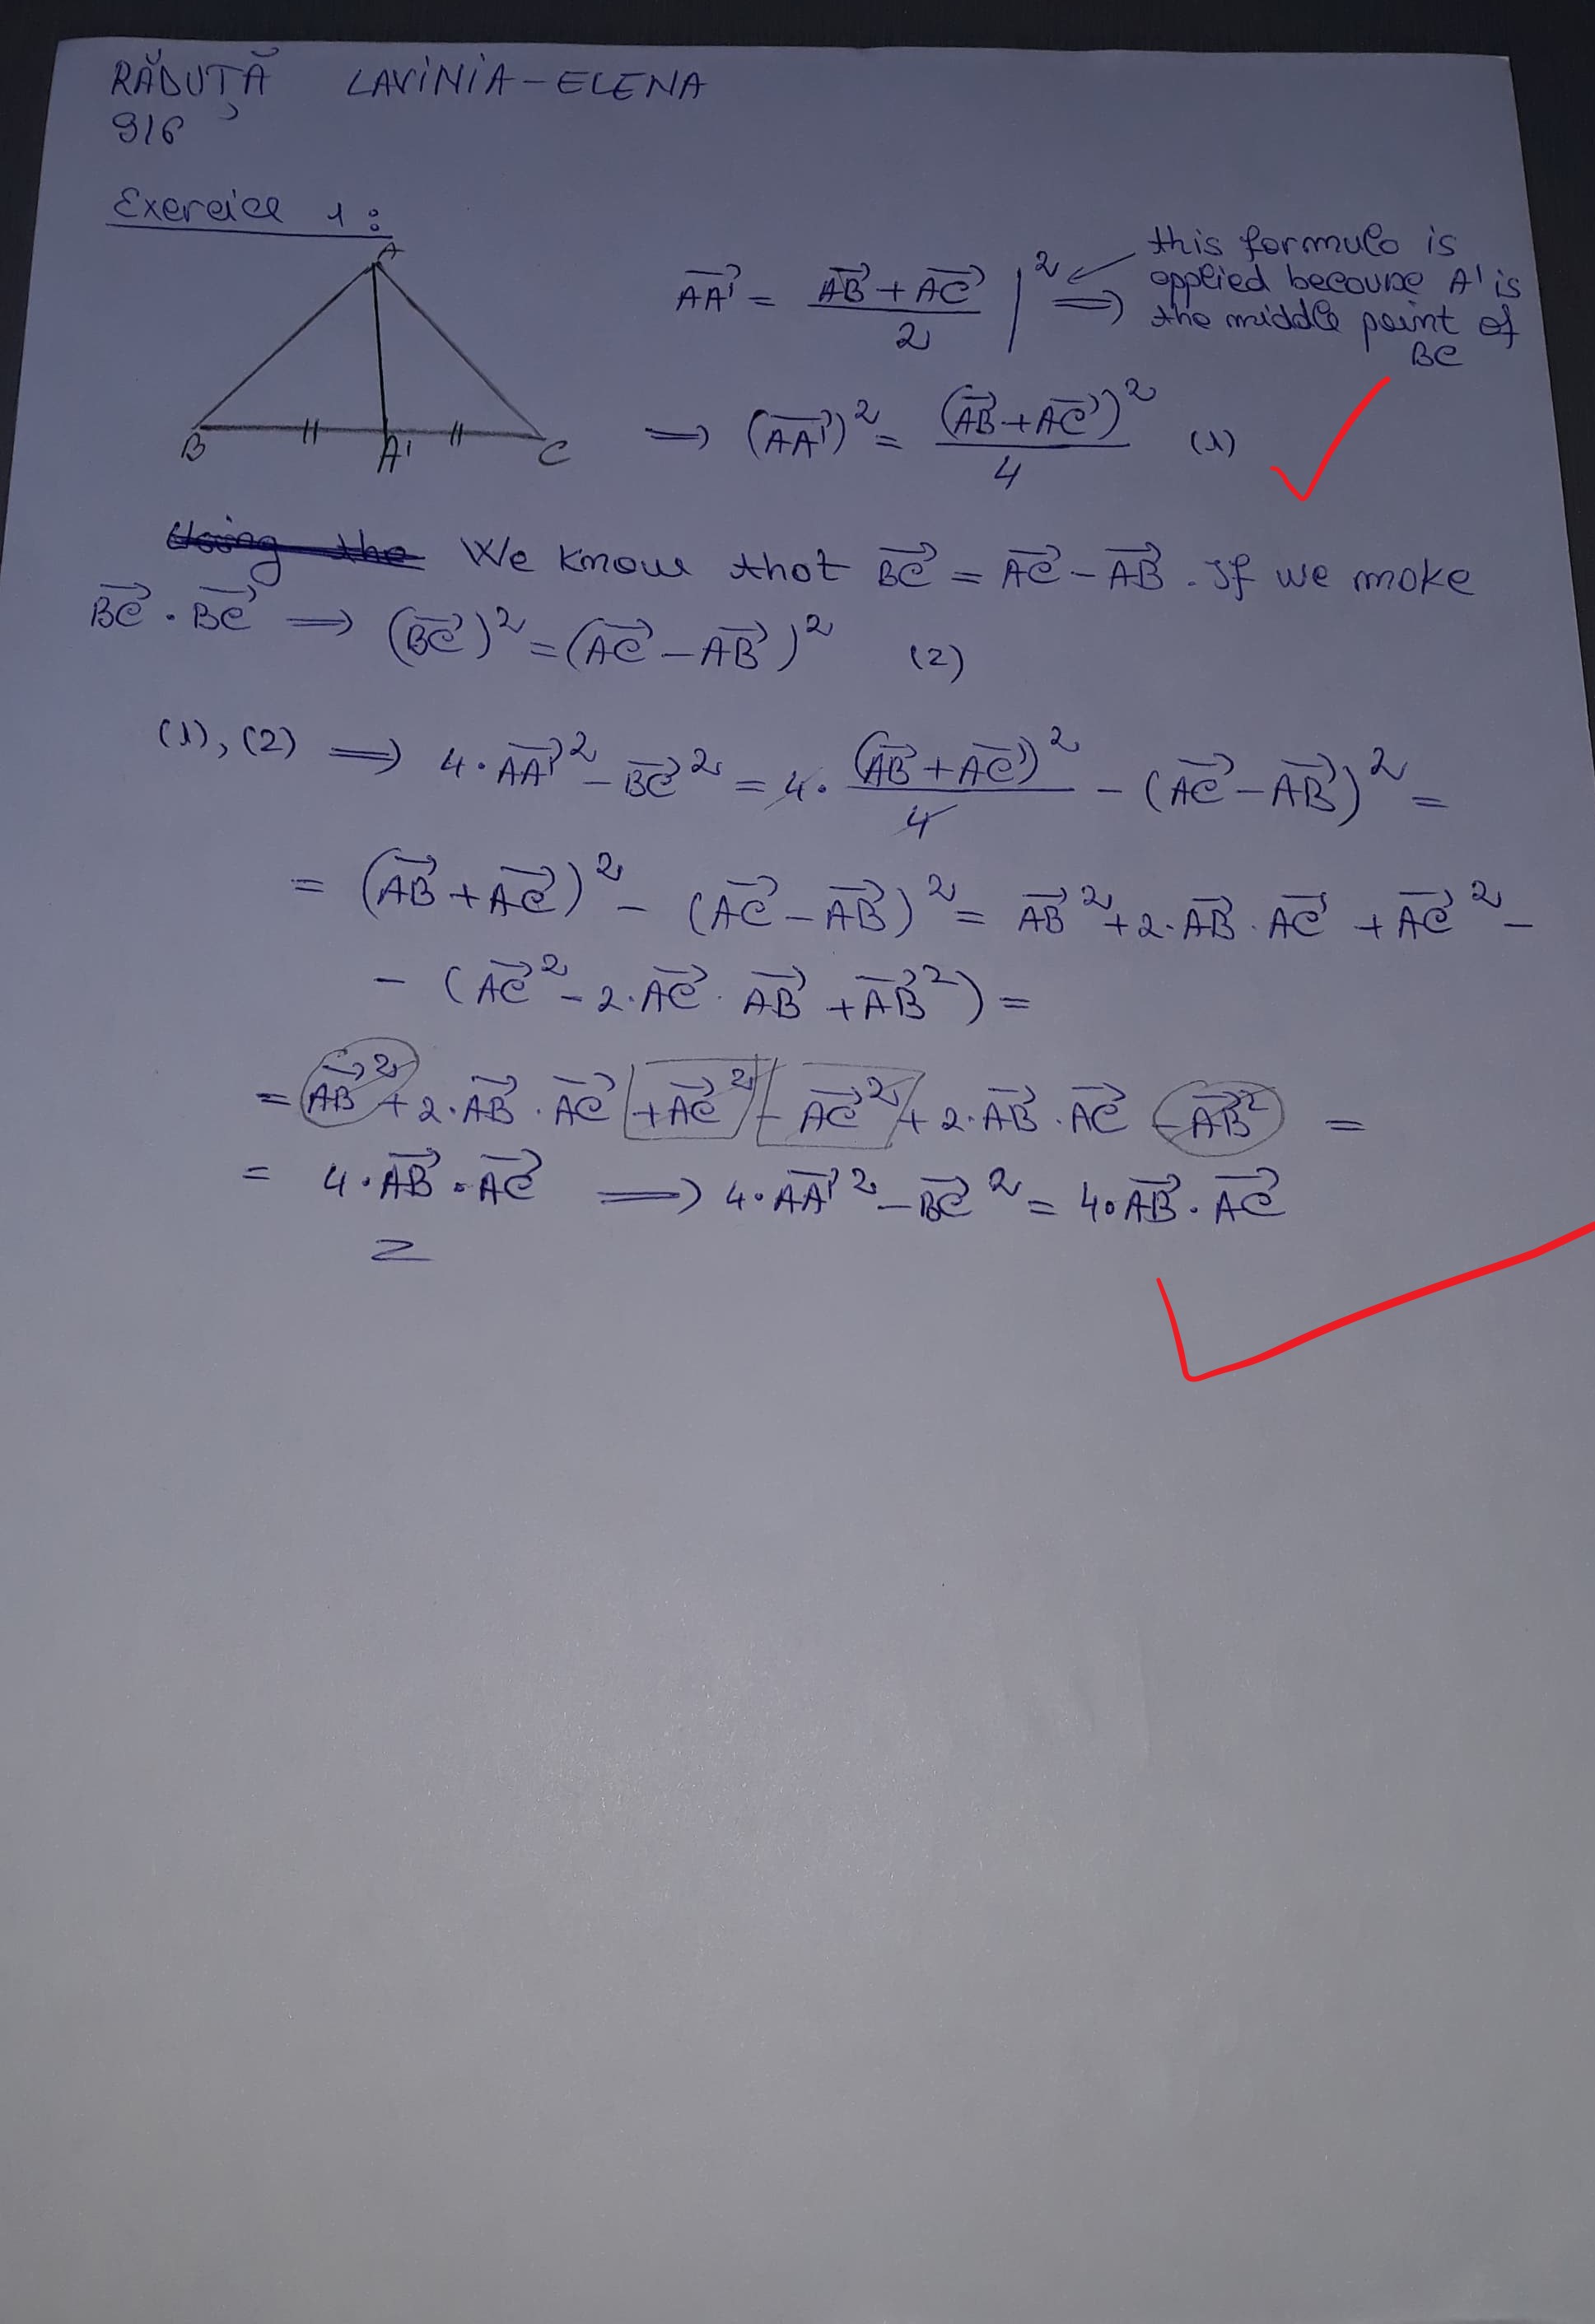 RĂDUȚĂ LAVINIA-ELENA
916
Exercice 1:
A
B A' C
AA'⃗ = (AB⃗ + AC⃗)/2 |² ⟹ this formula is
applied because A' is
the middle point of
BC
⟹ (AA'⃗)² = (AB⃗ + AC⃗)²/4 (1)
Using the We know that BC⃗ = AC⃗ - AB⃗. If we make
BC⃗ · BC⃗ ⟹ (BC⃗)² = (AC⃗ - AB⃗)² (2)
(1), (2) ⟹ 4 · AA'⃗² - BC⃗² = 4 · (AB⃗ + AC⃗)²/4 - (AC⃗ - AB⃗)² =
= (AB⃗ + AC⃗)² - (AC⃗ - AB⃗)² = AB⃗² + 2 · AB⃗ · AC⃗ + AC⃗² -
- (AC⃗² - 2 · AC⃗ · AB⃗ + AB⃗²) =
= AB⃗² + 2 · AB⃗ · AC⃗ + AC⃗² - AC⃗² + 2 · AB⃗ · AC⃗ - AB⃗² =
= 4 · AB⃗ · AC⃗ ⟹ 4 · AA'⃗² - BC⃗² = 4 · AB⃗ · AC⃗